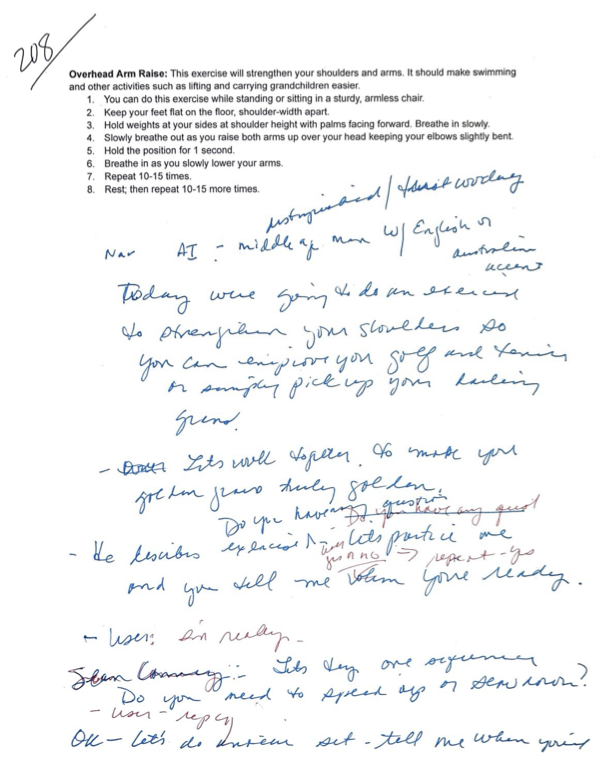 208
Overhead Arm Raise: This exercise will strengthen your shoulders and arms. It should make swimming
and other activities such as lifting and carrying grandchildren easier.
1. You can do this exercise while standing or sitting in a sturdy, armless chair.
2. Keep your feet flat on the floor, shoulder-width apart.
3. Hold weights at your sides at shoulder height with palms facing forward. Breathe in slowly.
4. Slowly breathe out as you raise both arms up over your head keeping your elbows slightly bent.
5. Hold the position for 1 second.
6. Breathe in as you slowly lower your arms.
7. Repeat 10-15 times.
8. Rest; then repeat 10-15 more times.
distinguished /
Nar AI - middle age man w/ English or
australian
accent
Today were going to do an exercise
to strengthen your shoulders so
you can improve you golf and tennis
or simply pick up your darling
grand.
- Lets work together to make your
golden years truly golden.
Do you have any question
Do you have any quest
- He describes exercise - lets practice one
yes or no → repeat - yes
and you tell me when youre ready.
- User: Im ready -
Sean Connery :- Lets try one sequence
Do you need to speed up or slow down?
- User - reply
OK - let's do set - tell me when you're